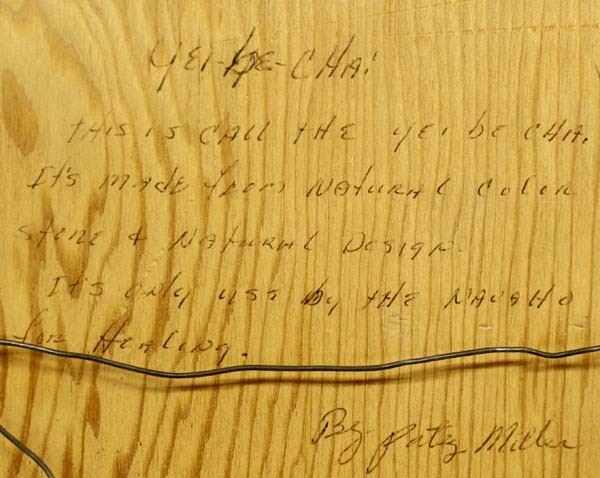 YEI-BE-CHAI
THIS IS CALL THE YEI BE CHAI.
It's MADE from NATURAL COLOR
STONE & NATURAL DESIGN.
It's only use by THE NAVAHO
for HEALING.
By Patsy Miller